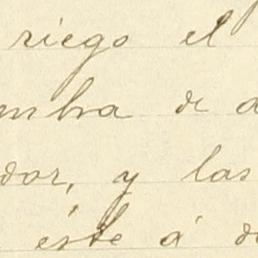 riego el
mbra de a
dor, y las
éste á de